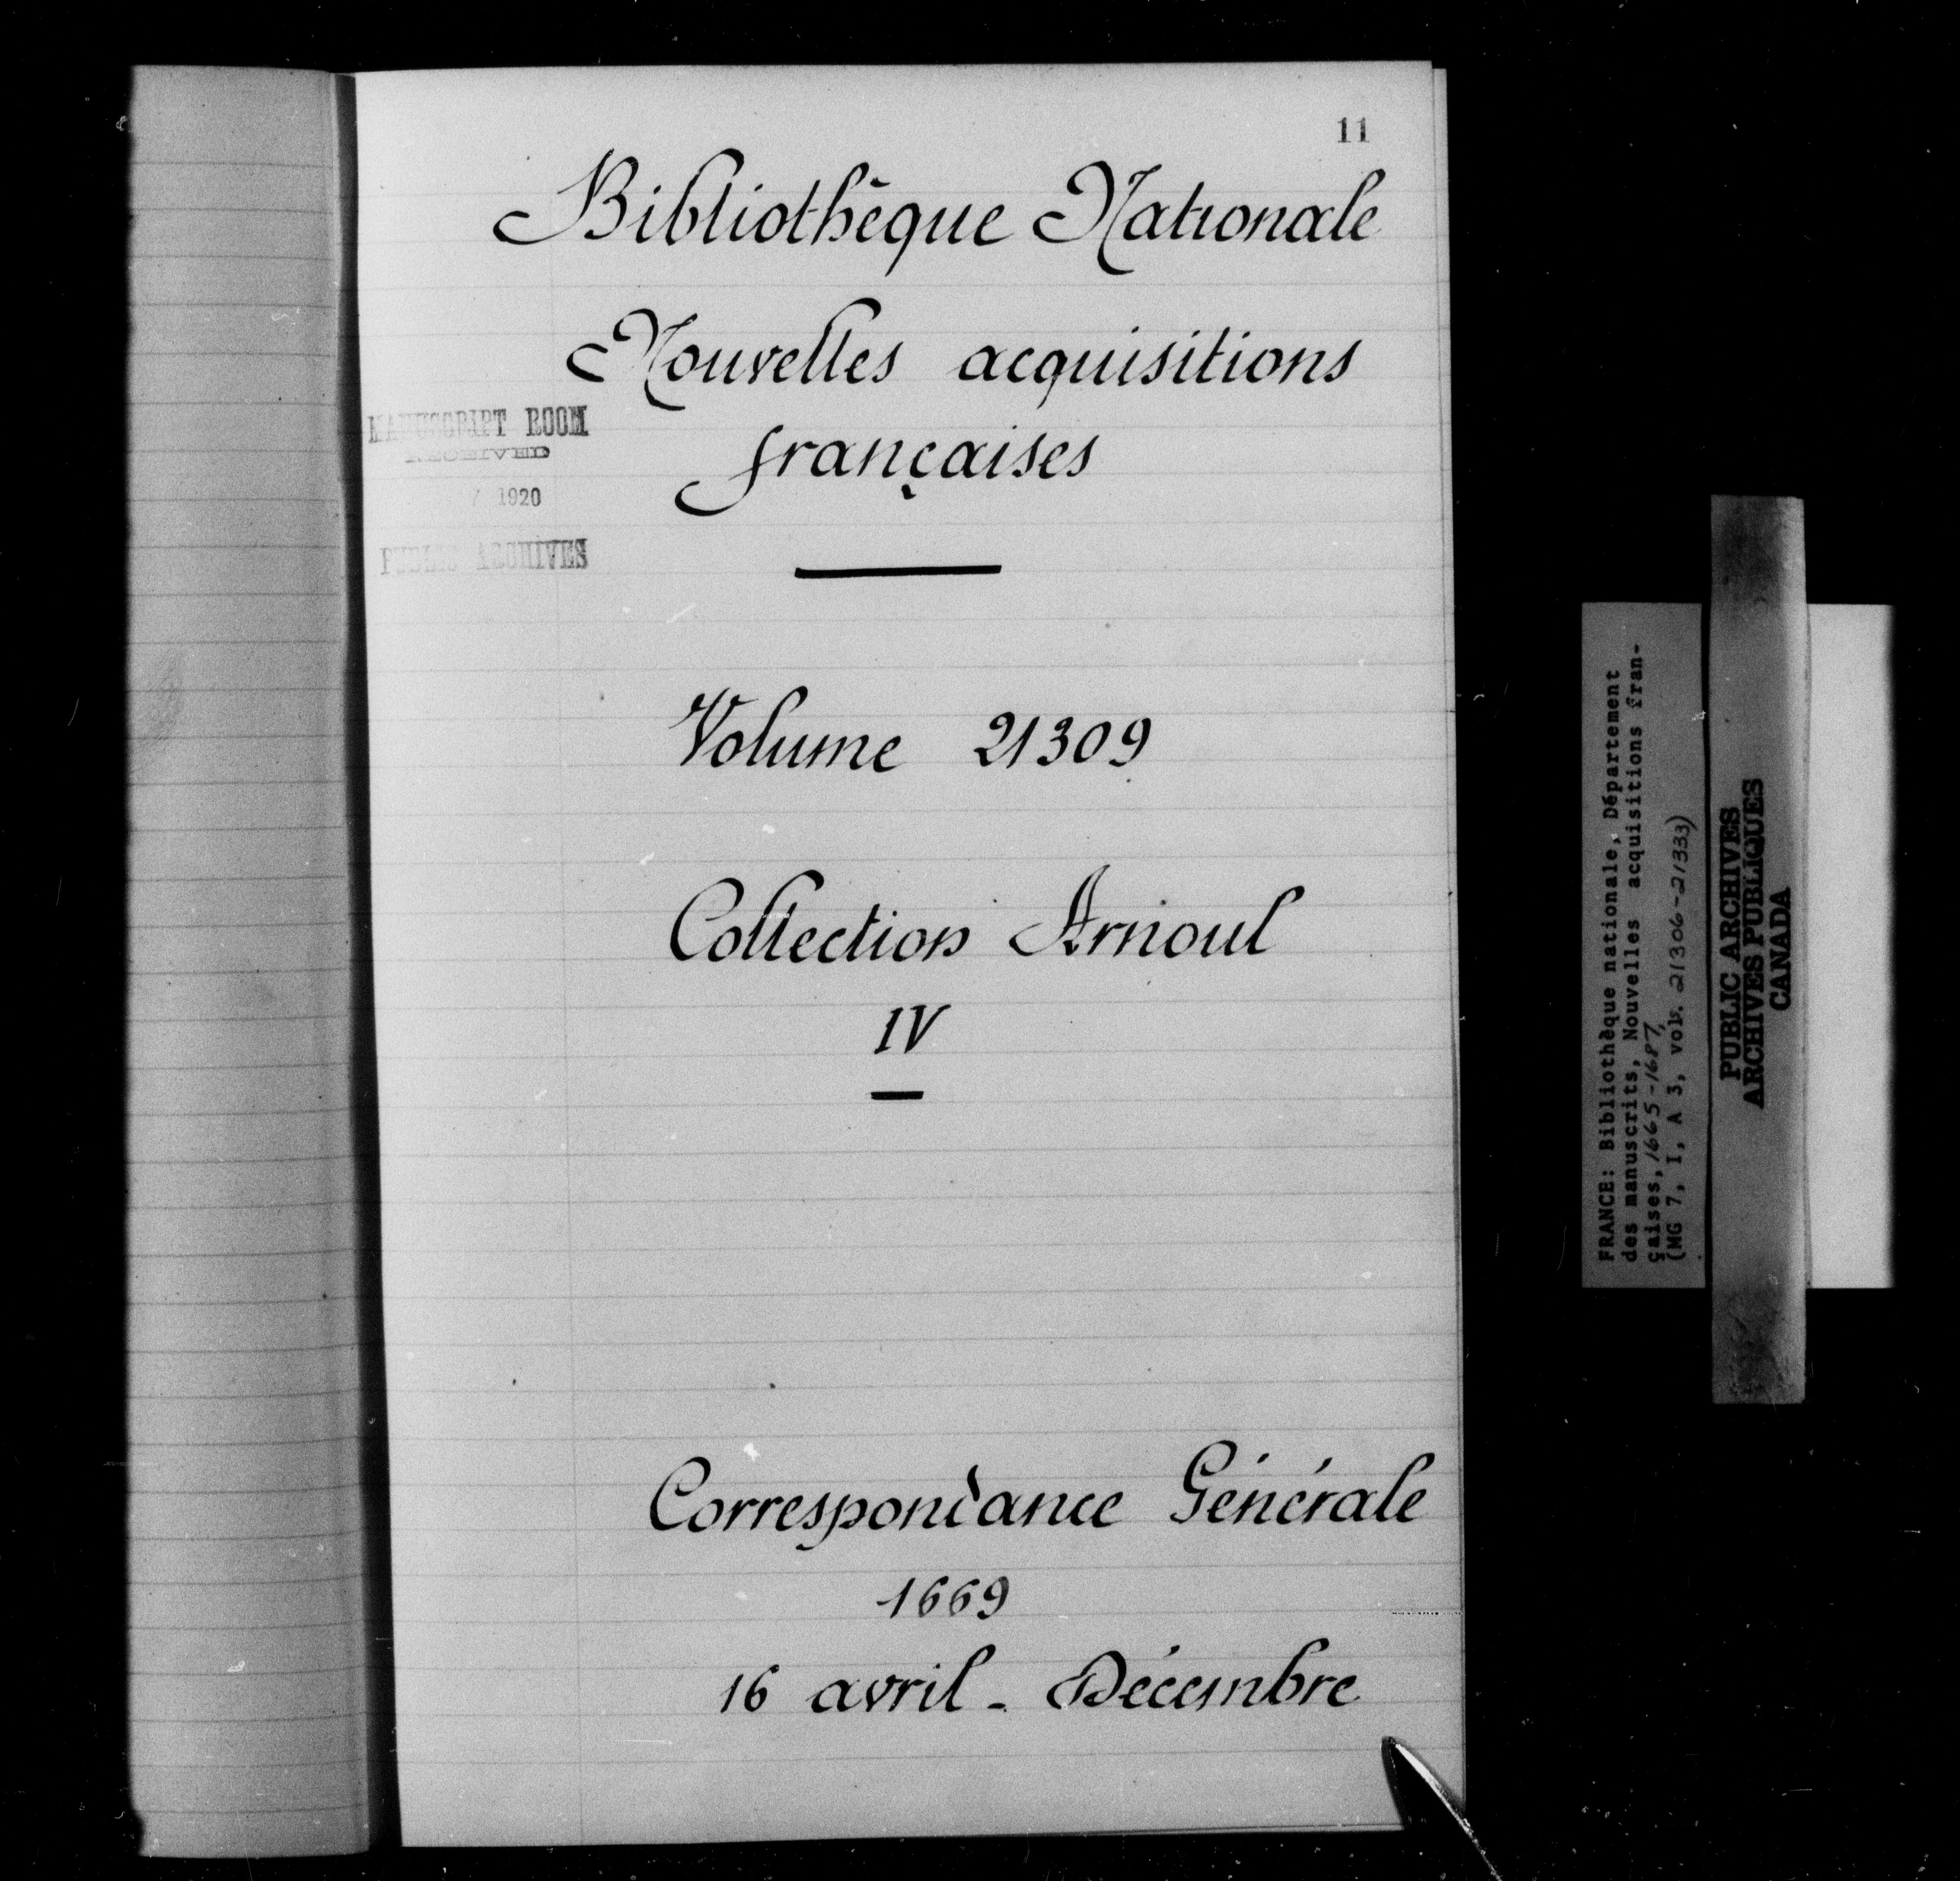 11
Bibliothèque Nationale
Nouvelles acquisitions
françaises
MANUSCRIPT ROOM
RECEIVED
1920
PUBLIC ARCHIVES
Volume 21309
Collection Arnoul
IV
Correspondance Générale
1669
16 avril - Décembre
FRANCE: Bibliothèque nationale, Département
des manuscrits, Nouvelles acquisitions fran-
çaises, 1665-1687,
(MG 7, I, A 3, vols. 21306-21333)
PUBLIC ARCHIVES
ARCHIVES PUBLIQUES
CANADA